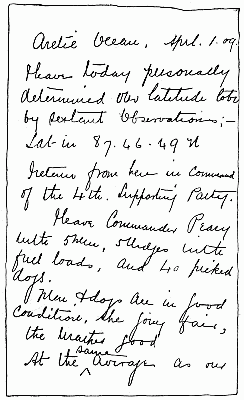 Arctic Ocean, Aprl. 1. 09.
I have today personally
determined our latitude to be
by sextant observations;-
Lat in 87. 46. 49 N
I return from here in Command
of the 4th. Supporting Party.
I leave Commander Peary
with 5 men, 5 sledges with
full loads, and 40 picked
dogs.
Men & dogs are in good
condition, the going fair,
the weather good
At the same average as our